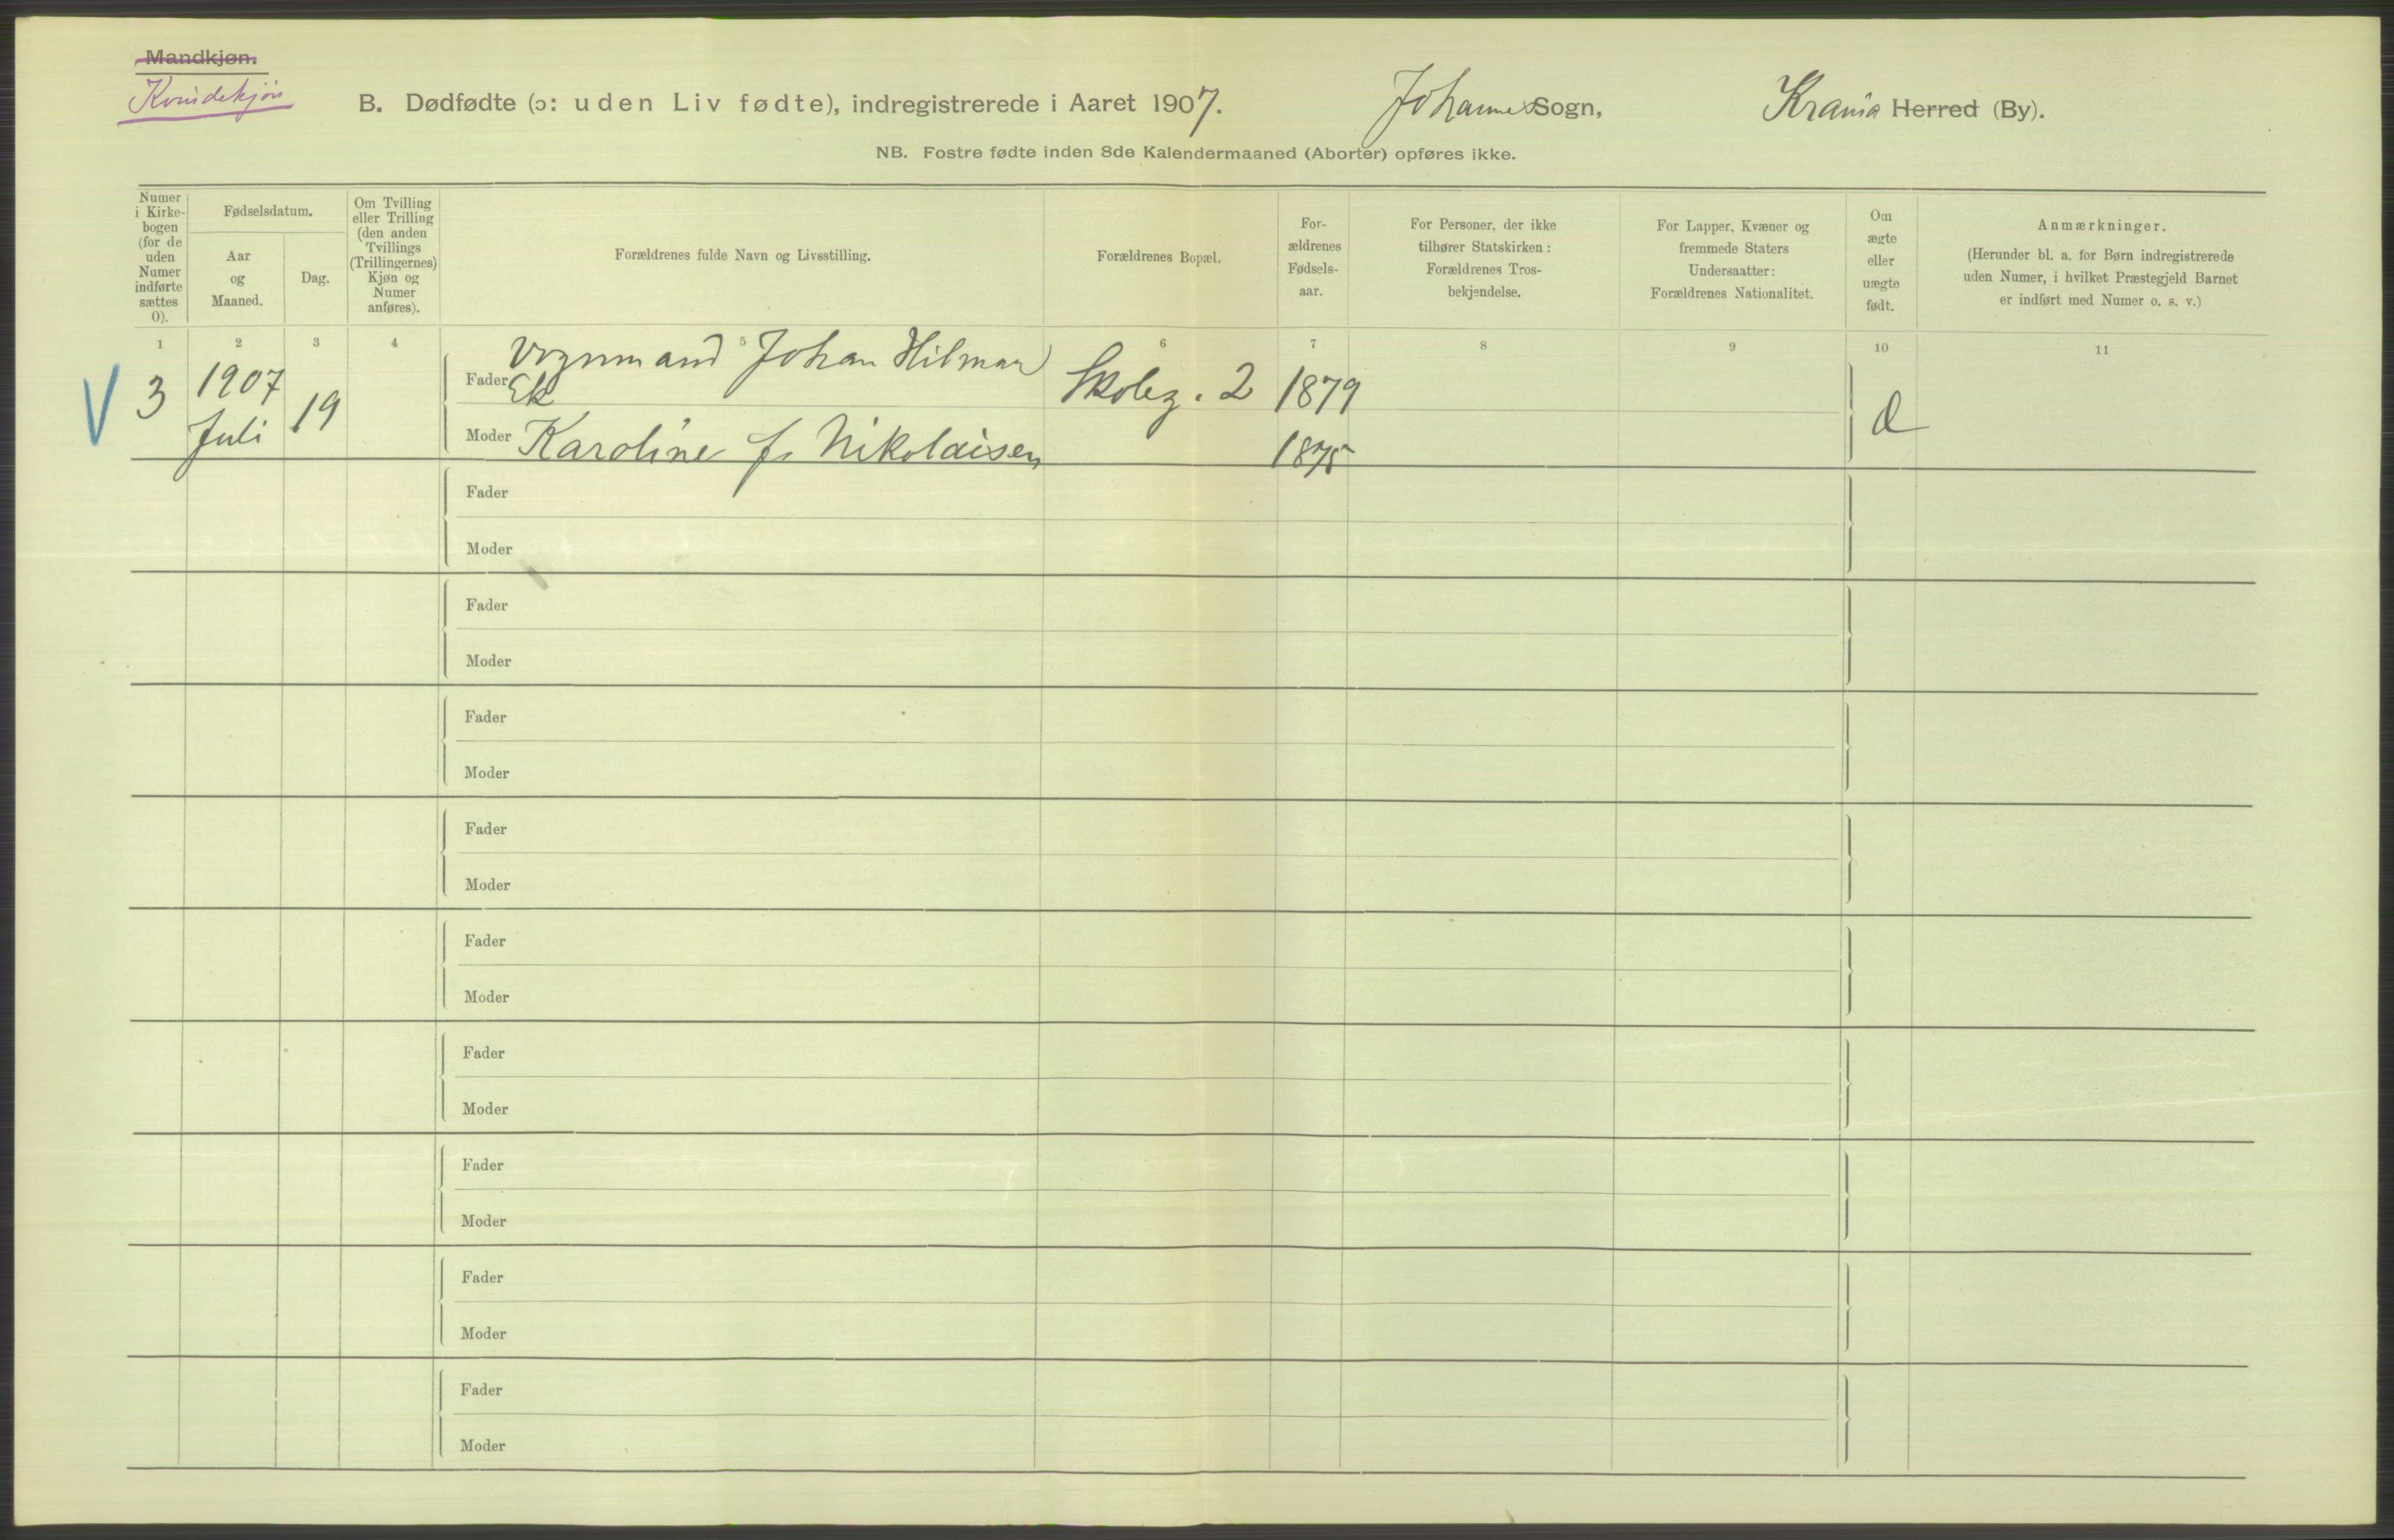 Mandkjøn.
Kvindekjøn
B. Dødfødte (ɔ: uden Liv fødte), indregistrerede i Aaret 1907. Johannes Sogn, Krania Herred (By).
NB. Fostre fødte inden 8de Kalendermaaned (Aborter) opføres ikke.
Numer
i Kirke-
bogen
(for de
uden
Numer
indførte
sættes
0).
Fødselsdatum.
Aar
og
Maaned.
Dag.
Om Tvilling
eller Trilling
(den anden
Tvillings
(Trillingernes)
Kjøn og
Numer
anføres).
Forældrenes fulde Navn og Livsstilling.
Forældrenes Bopæl.
For-
ældrenes
Fødsels-
aar.
For Personer, der ikke
tilhører Statskirken:
Forældrenes Tros-
bekjendelse.
For Lapper, Kvæner og
fremmede Staters
Undersaatter:
Forældrenes Nationalitet.
Om
ægte
eller
uægte
født.
Anmærkninger.
(Herunder bl. a. for Børn indregistrerede
uden Numer, i hvilket Præstegjeld Barnet
er indført med Numer o. s. v.)
1 2 3 4 5 6 7 8 9 10 11
V 3 1907 Juli 19
Fader Vognmand Johan Hilmar
Ek
Skoleg. 2 1879
Moder Karoline f. Nikolaisen 1875
Fader
Moder
Fader
Moder
Fader
Moder
Fader
Moder
Fader
Moder
Fader
Moder
Fader
Moder
Fader
Moder
Fader
Moder